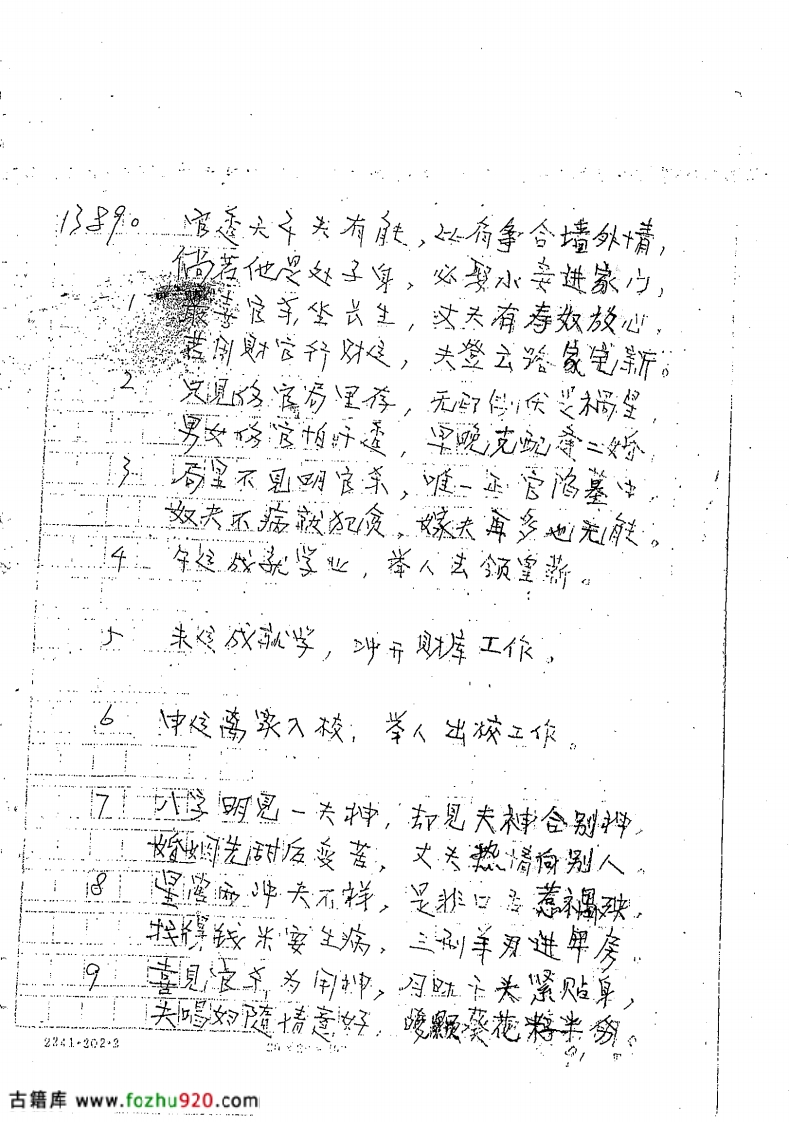 13890 官透天干夫有能，必有争合墙外情，
倘若他是处子身，必娶小妾进家门，
1 最喜官杀坐长生，丈夫有寿奴放心，
若倒财官行财运，夫登云路家宅新。
2 只见伤官局里存，无印制伏是祸星，
男女伤官怕干透，早晚克配奔二婚
3 局里不见明官杀，唯一正官陷墓中，
奴夫不病就犯贪，嫁夫再多也无能。
4 午运成就学业，举人去领皇薪。
5 未运成就学，冲开财库工作，
6 申运离家入校，举人出校工作。
7 八字明见一夫神，却见夫神合别神，
婚姻先甜后受苦，丈夫热情向别人。
8 星宫两冲夫不祥，是非口舌惹祸殃，
找得钱米要生病，三刑羊刃进牢房。
9 喜见官杀为用神，干头紧贴身，
夫唱妇随情意好，葵花
2341·202·3
91
古籍库 www.fozhu920.com